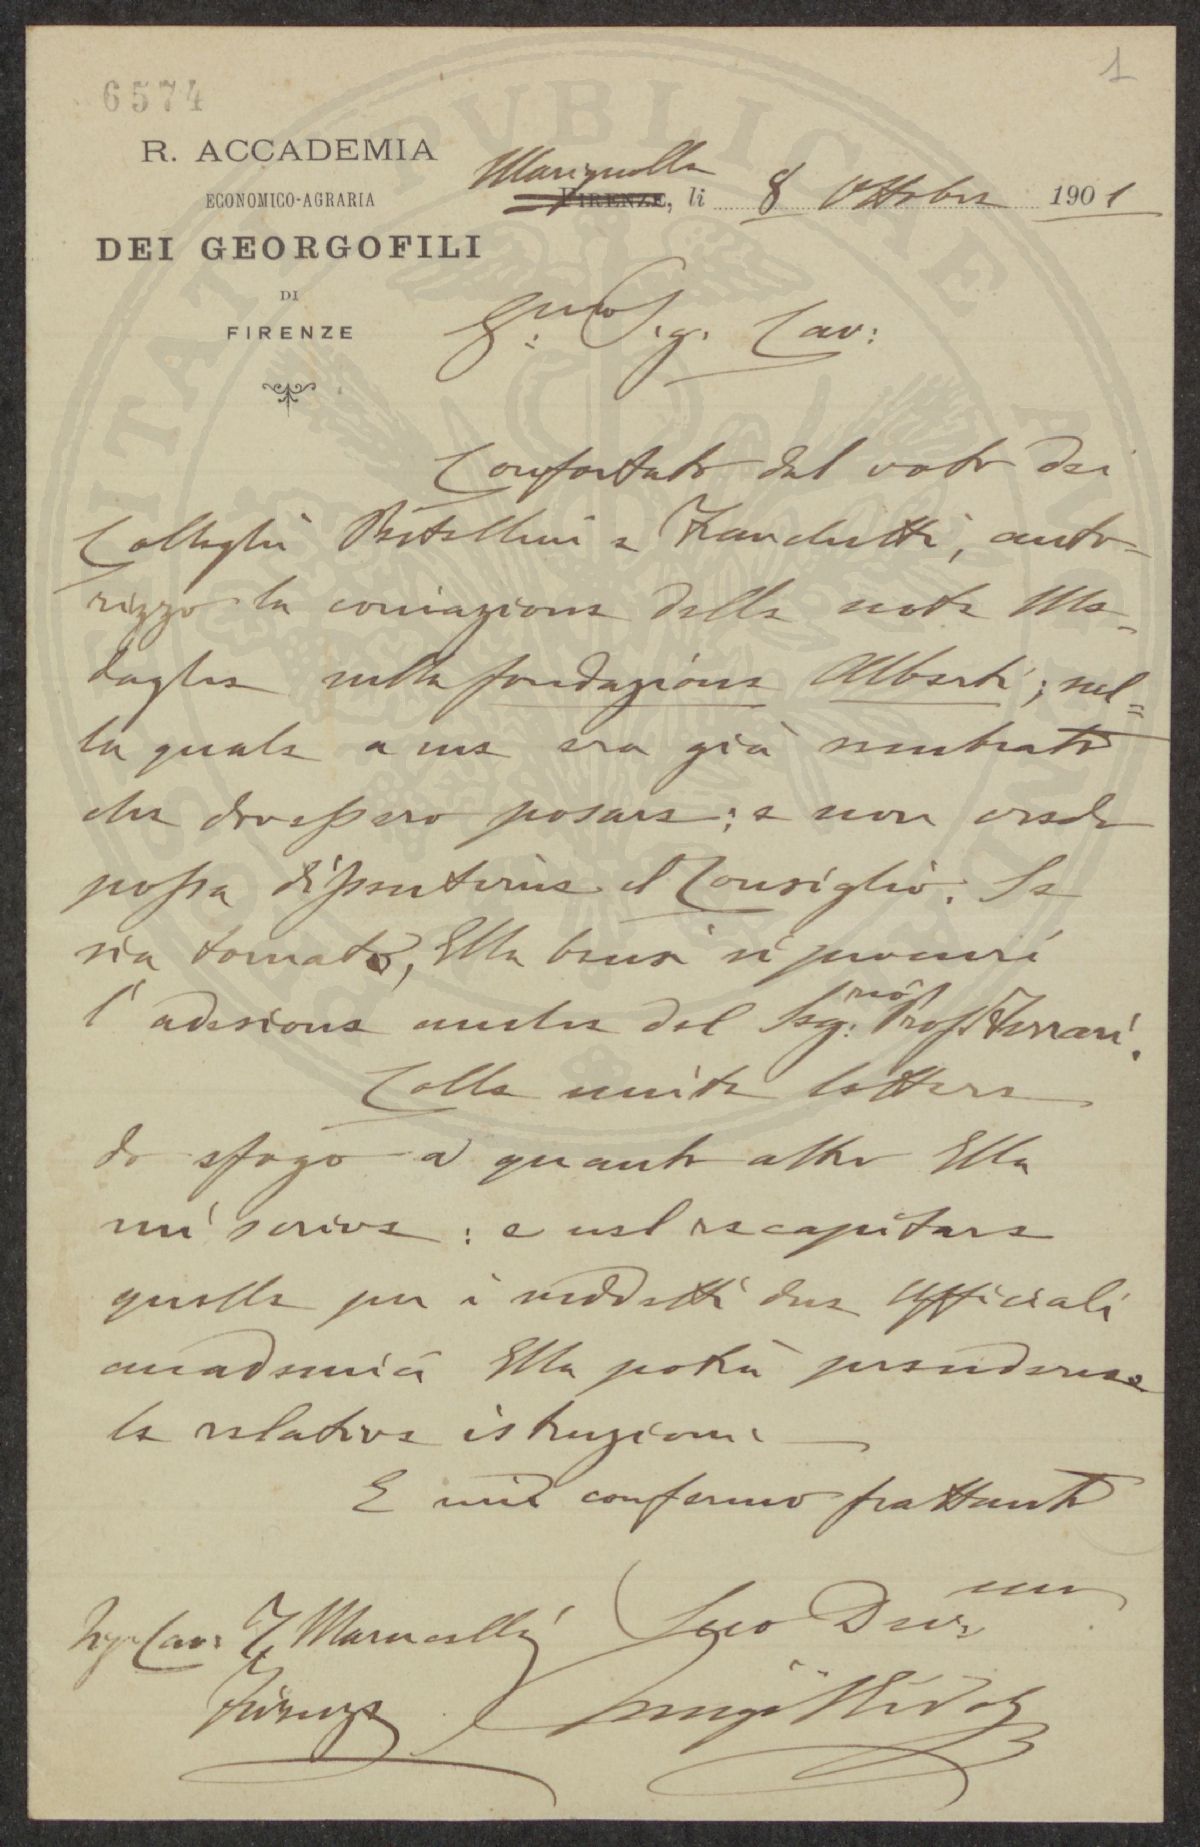 1
6574
R. ACCADEMIA
ECONOMICO-AGRARIA
DEI GEORGOFILI
DI
FIRENZE
Marignolle
FIRENZE, li 8 Ottobre 1901
Sig. Cav:
Confortato dal voto dei
Colleghi e Franchetti, auto-
rizzo la coniazione delle note Me-
daglie sulla fondazione Alberti; sul=
la quale a me era già sembrato
che dovessero posare; e non credo
possa dissentirne il Consiglio. Se
sia tornato, Ella bensì si procuri
l'adesione anche del Seg:rio Prof. Ferrari.
Colle unite lettere
do sfogo a quanto altro Ella
mi scrive: e nel recapitare
quelle per i suddetti due Ufficiali
accademici Ella potrà prenderne
le relative istruzioni
E mi confermo frattanto
Suo Dev:mo
Sig. Cav: Marucelli
Firenze
Luigi Ridolfi
PVBLICAE